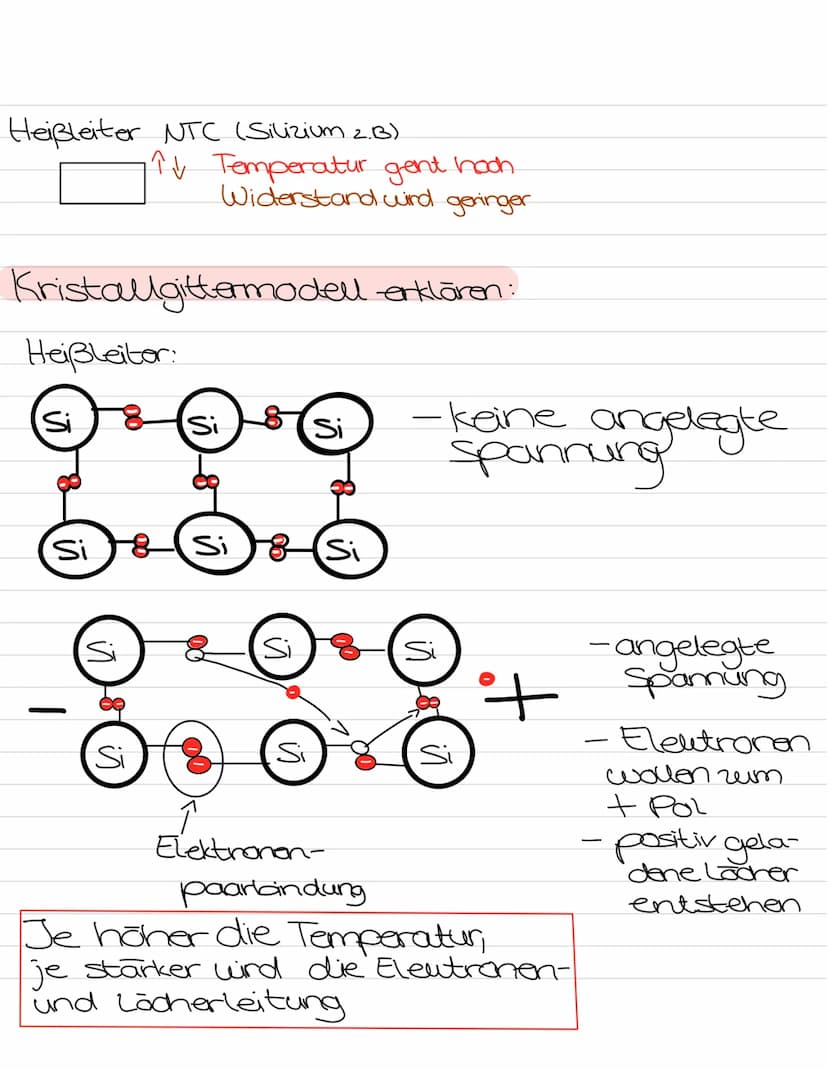 Heißleiter NTC (Silizium z.B)
↑↓ Temperatur geht hoch
Widerstand wird geringer
Kristallgittermodell erklären:
Heißleiter:
Si Si Si
- keine angelegte
Spannung
Si Si Si
Si Si Si
- angelegte
Spannung
- +
Si Si Si
- Elektronen
wollen zum
+ Pol
- positiv gela-
dene Löcher
entstehen
Elektronen-
paarbindung
Je höher die Temperatur,
je stärker wird die Elektronen-
und Löcherleitung